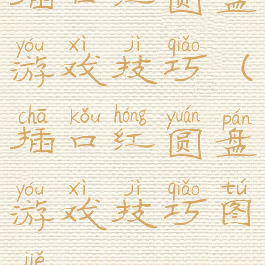 圆盘
yóu xì jì qiǎo
游戏技巧（
chā kǒu hóng yuán pán
插口红圆盘
yóu xì jì qiǎo tú
游戏技巧图
jiě